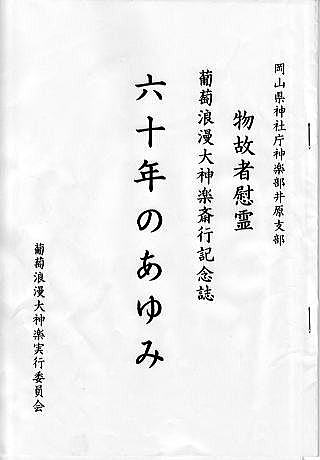 岡山県神社庁神楽部井原支部
物故者慰霊
葡萄浪漫大神楽斎行記念誌
六十年のあゆみ
葡萄浪漫大神楽実行委員会